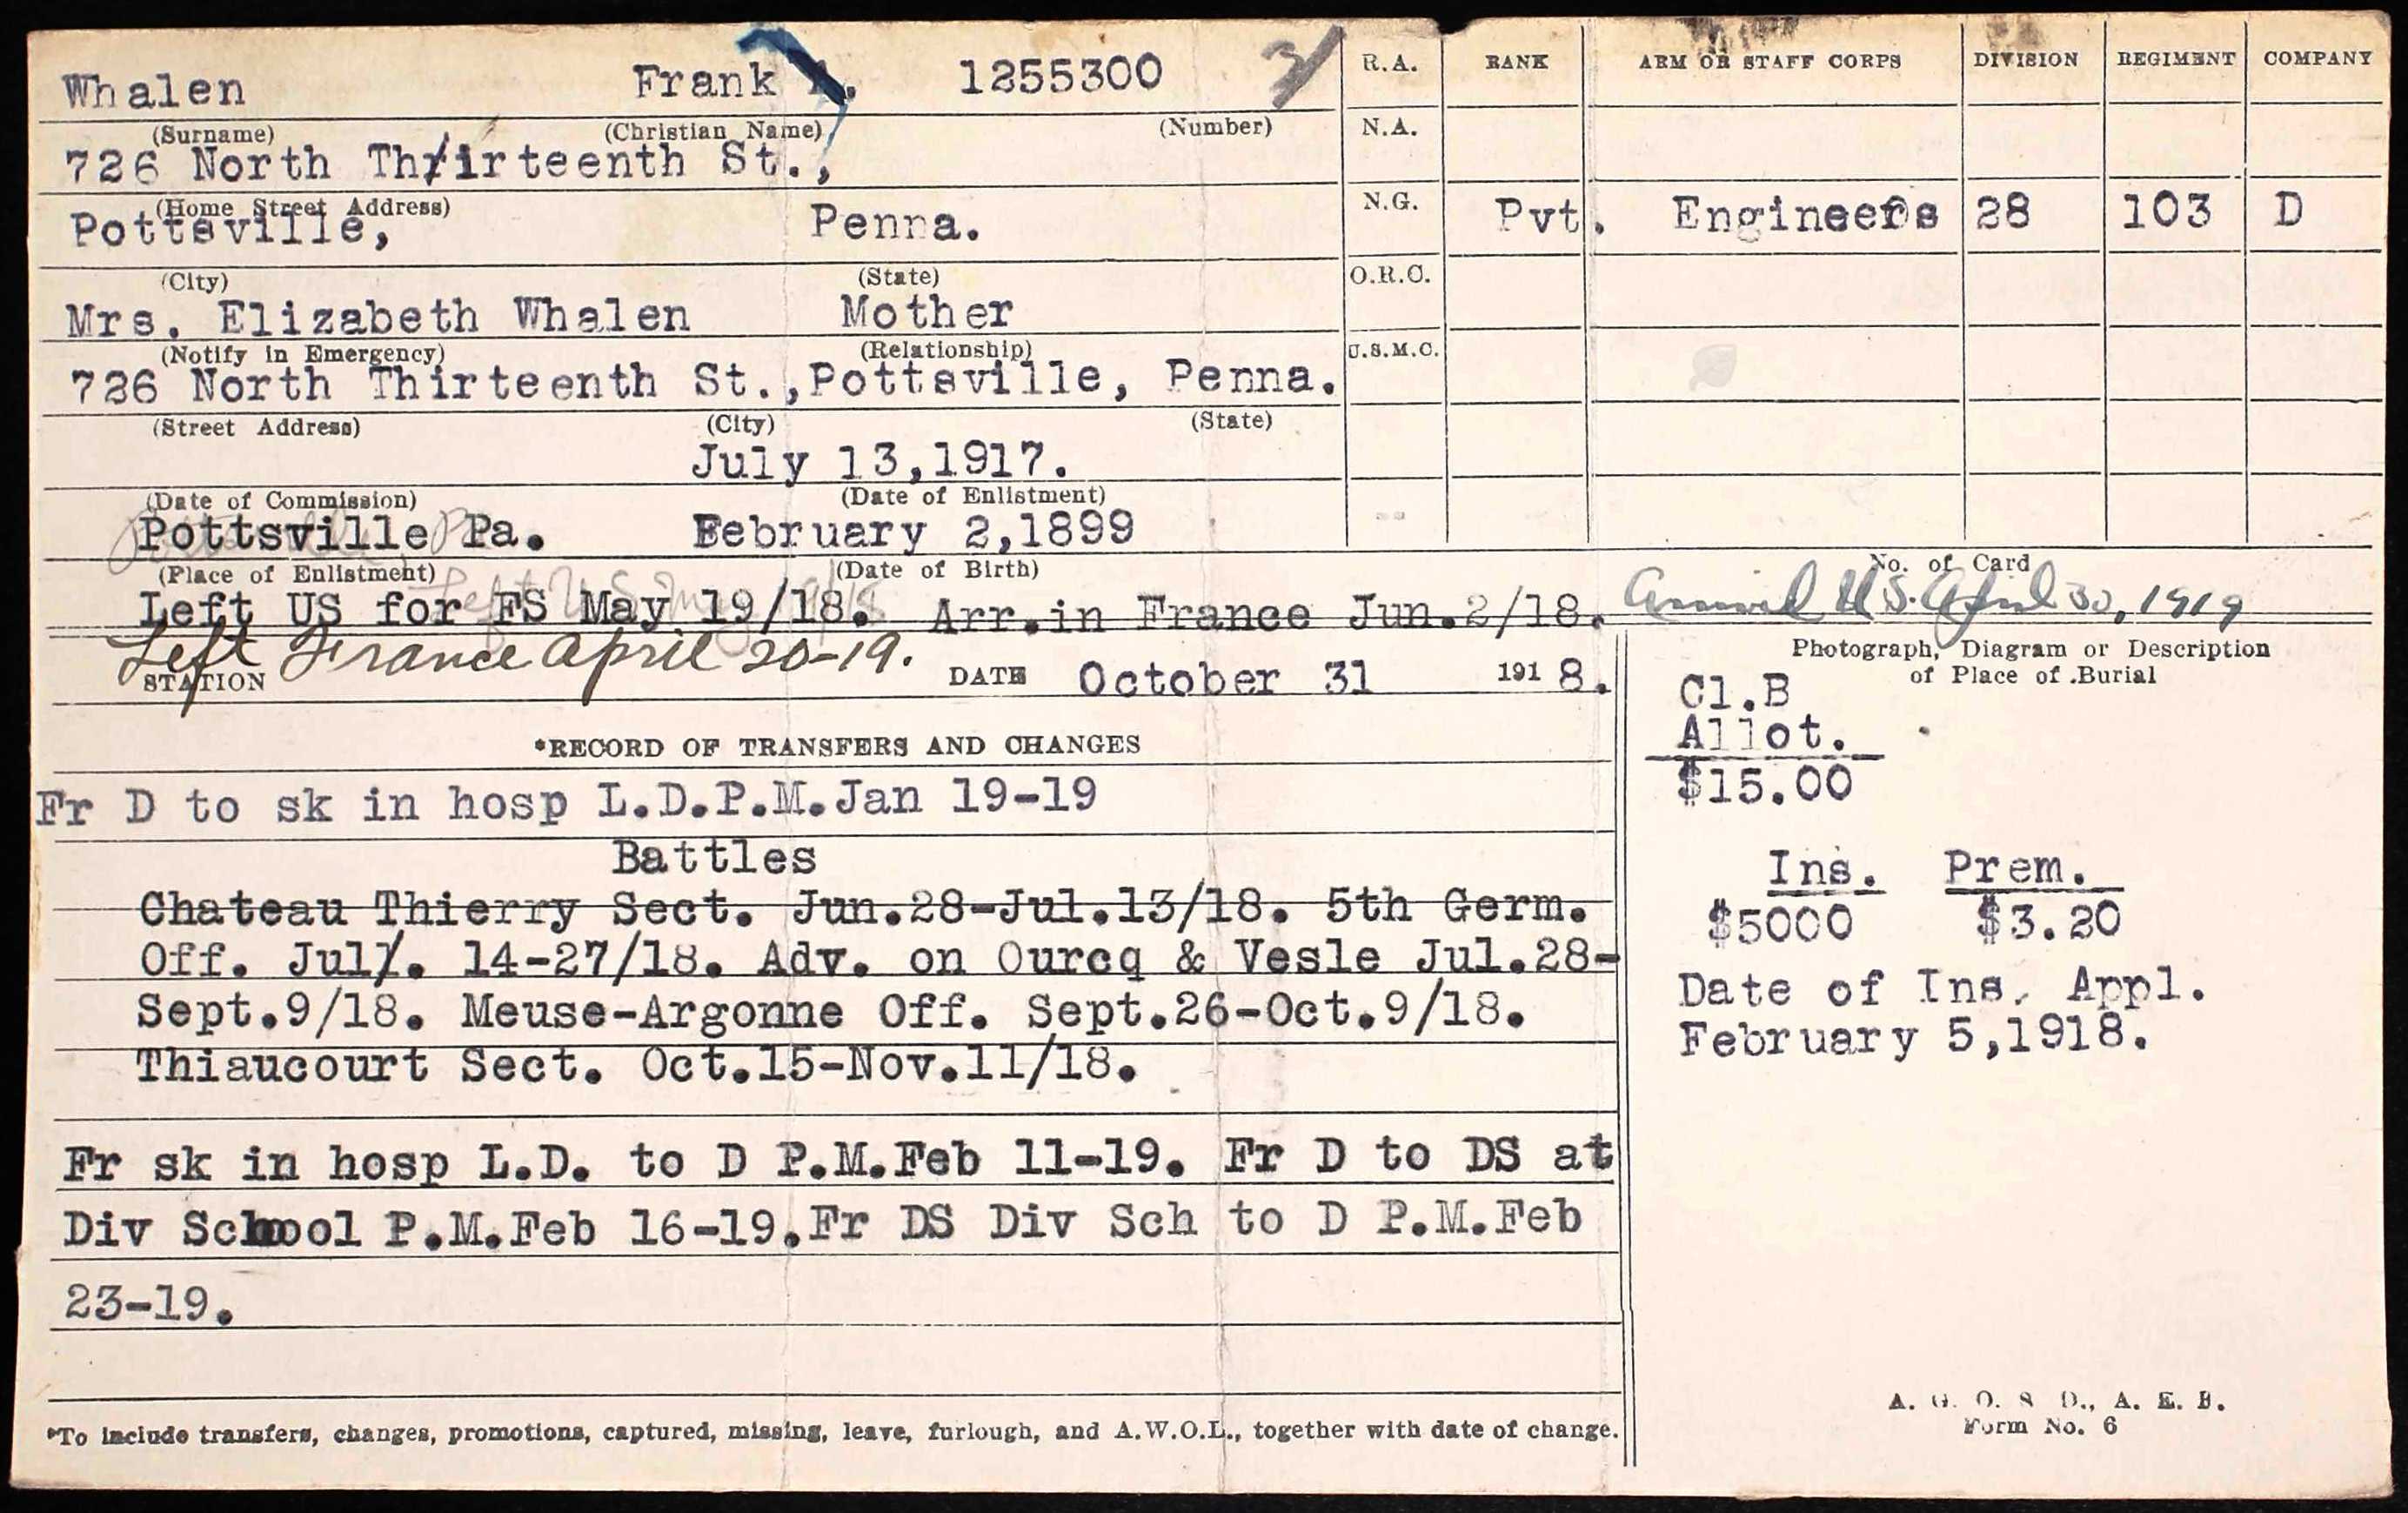 Whalen Frank 1255300
(Surname) (Christian Name) (Number)
726 North Thirteenth St.,
(Home Street Address)
Pottsville, Penna.
(City) (State)
Mrs. Elizabeth Whalen Mother
(Notify in Emergency) (Relationship)
726 North Thirteenth St.,Pottsville, Penna.
(Street Address) (City) (State)
July 13,1917.
(Date of Commission) (Date of Enlistment)
Pottsville Pa. February 2,1899
(Place of Enlistment) (Date of Birth)
Left US for FS May 19/18. Arr.in France Jun.2/18.
Left France April 20-19.
STATION DATE October 31 1918.
R.A. RANK ARM OR STAFF CORPS DIVISION REGIMENT COMPANY
N.A.
N.G. Pvt. Engineers 28 103 D
O.R.C.
U.S.M.C.
No. of Card
Arrived U.S. April 30, 1919
*RECORD OF TRANSFERS AND CHANGES
Fr D to sk in hosp L.D.P.M.Jan 19-19
Battles
Chateau Thierry Sect. Jun.28-Jul.13/18. 5th Germ.
Off. Jul. 14-27/18. Adv. on Ourcq & Vesle Jul.28-
Sept.9/18. Meuse-Argonne Off. Sept.26-Oct.9/18.
Thiaucourt Sect. Oct.15-Nov.11/18.
Fr sk in hosp L.D. to D P.M.Feb 11-19. Fr D to DS at
Div School P.M.Feb 16-19.Fr DS Div Sch to D P.M.Feb
23-19.
*To include transfers, changes, promotions, captured, missing, leave, furlough, and A.W.O.L., together with date of change.
Photograph, Diagram or Description
of Place of Burial
Cl.B
Allot.
$15.00
Ins. Prem.
$5000 $3.20
Date of Ins. Appl.
February 5,1918.
A. G. O. S D., A. E. B.
Form No. 6